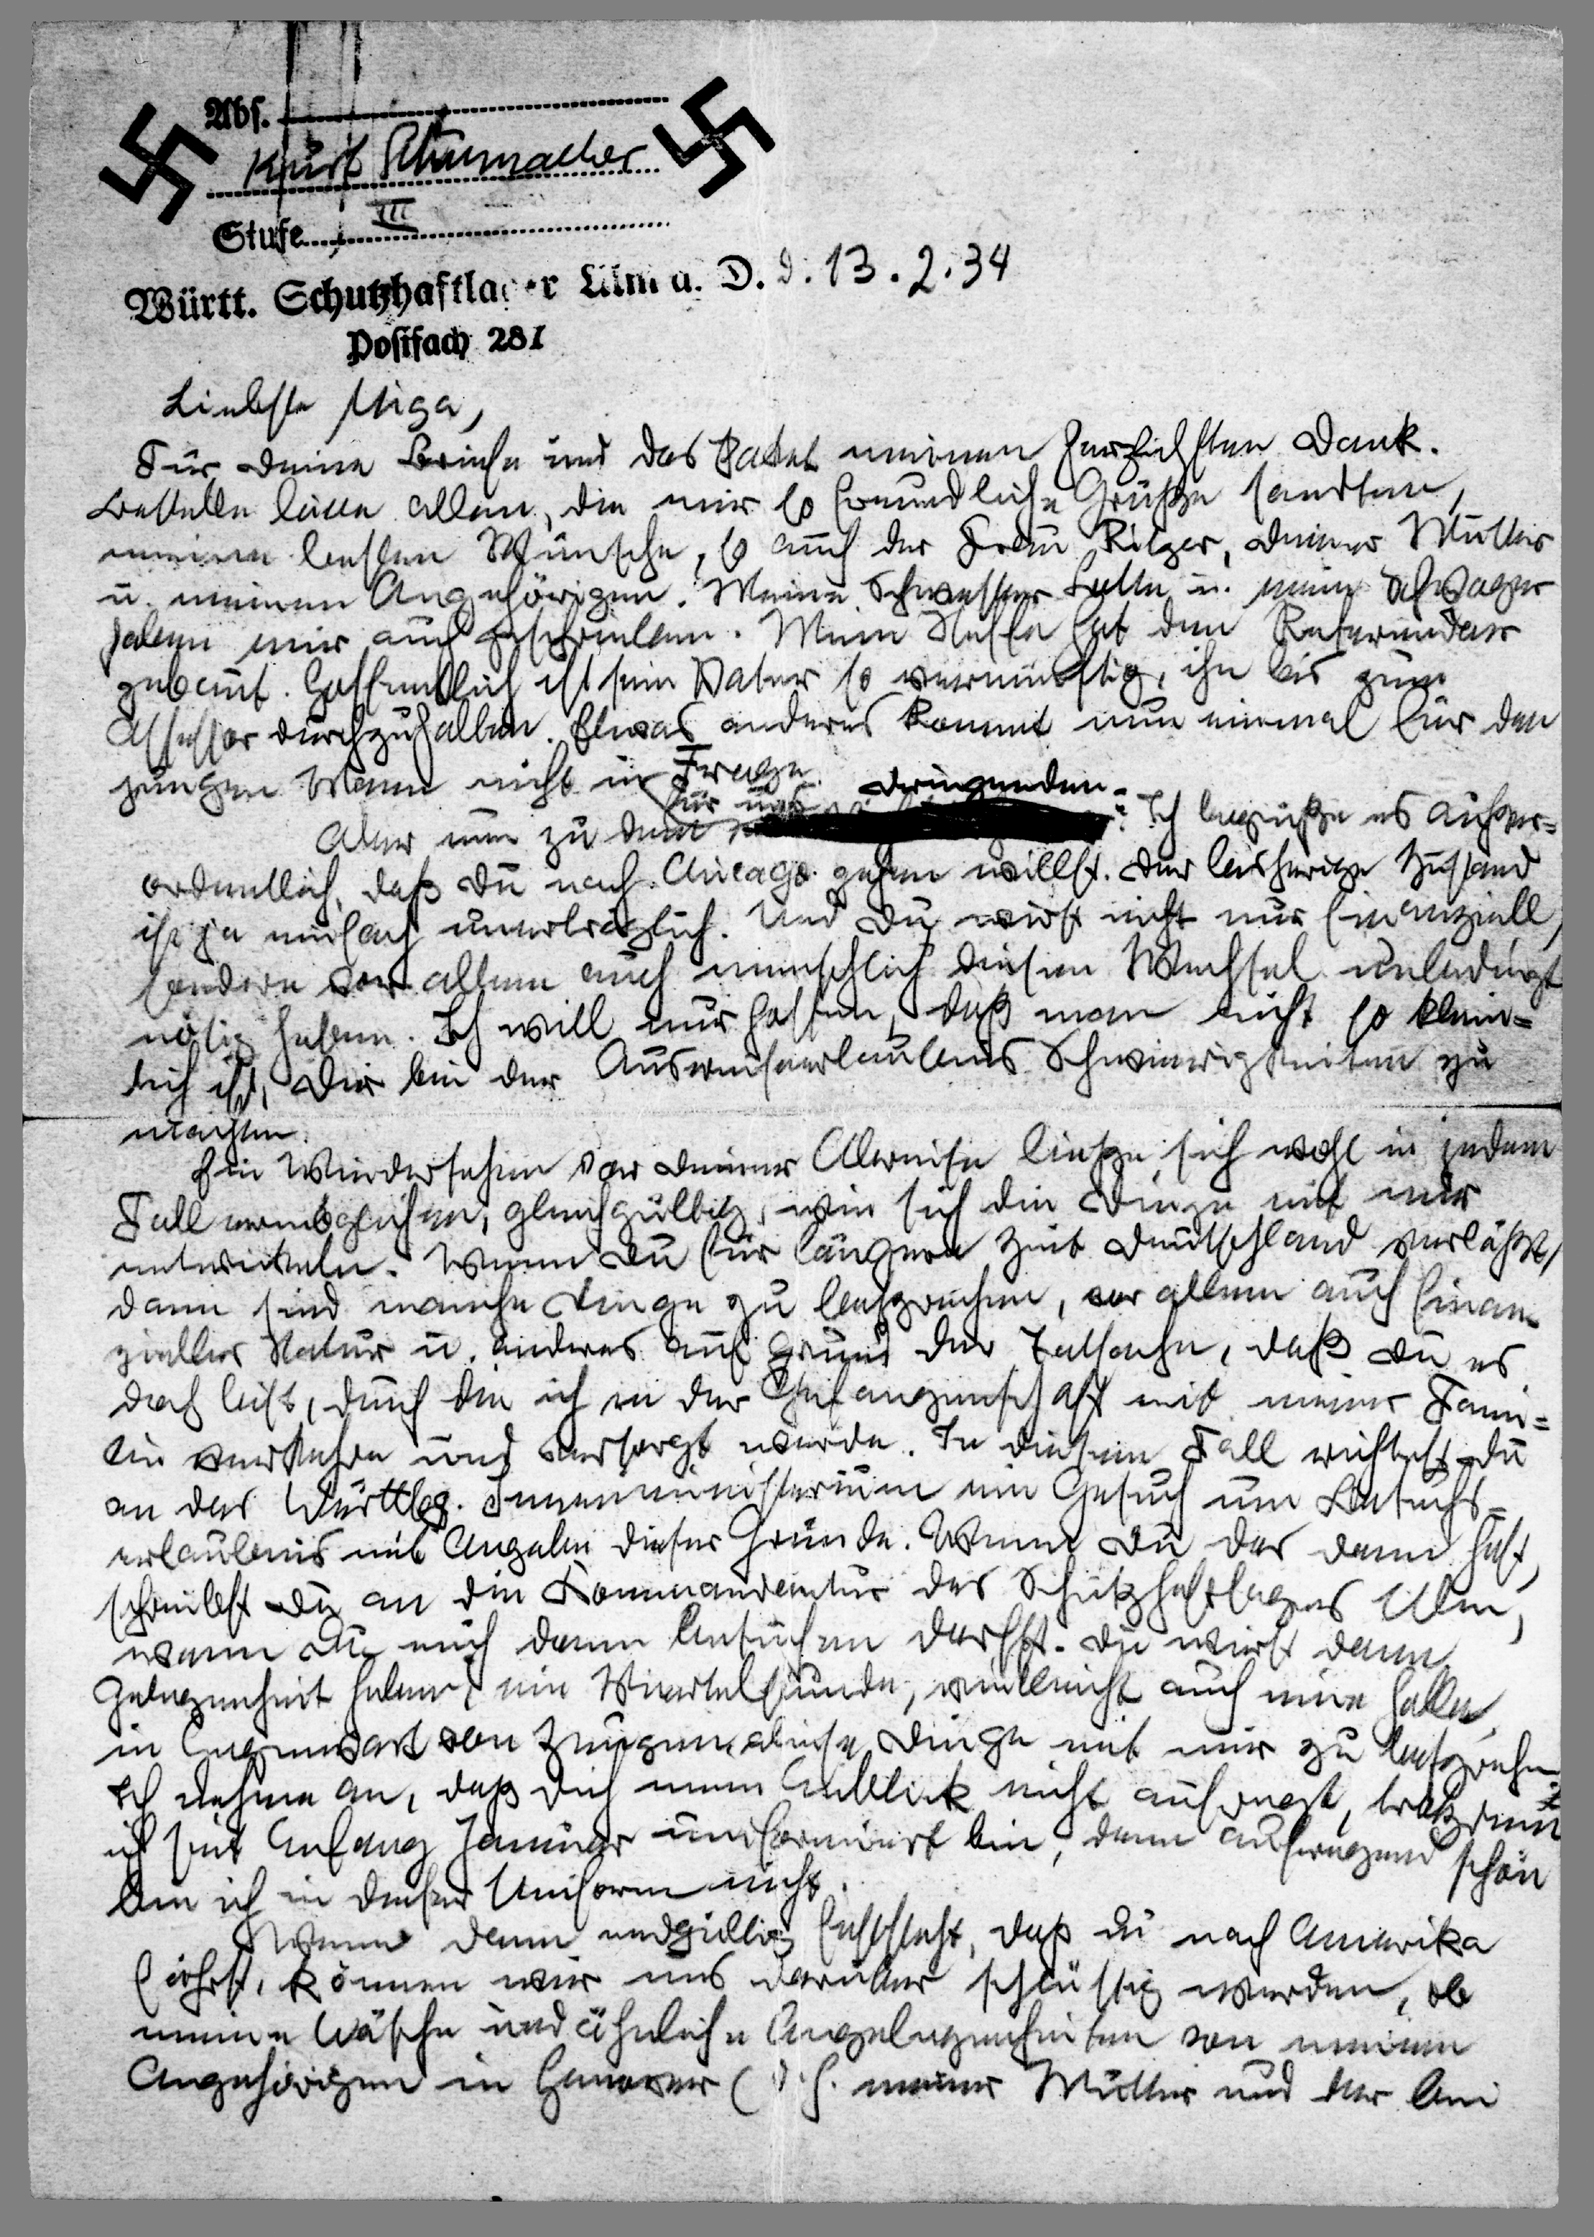 Abs.
Kurt Schumacher
Stufe III
Württ. Schutzhaftlager Ulm a. D. d. 13.2.34
Postfach 281
Liebste Miga,
Für deine Briefe und das Paket meinen herzlichsten Dank.
Bestelle bitte allen, die mir so freundliche Grüße sandten,
meine besten Wünsche, so auch der Frau Ritzer, deiner Mutter
u. meinen Angehörigen. Meine Schwester Lotte u. mein Schwager
haben mir auch geschrieben. Mein Neffe hat den Referendar
gebaut. Hoffentlich ist sein Vater so vernünftig, ihn bis zum
Assessor durchzuhalten. Etwas anderes kommt nun einmal für den
jungen Mann nicht in Frage.
Aber nun zu dem für uns dringenden: Ich begrüße es außer=
ordentlich, daß du nach Chicago gehen willst. Der bisherige Zustand
ist ja einfach unerträglich. Und du wirst nicht nur finanziell,
sondern vor allem auch menschlich diesen Wechsel unbedingt
nötig haben. Ich will nur hoffen, daß man nicht so klein=
lich ist, dir bei der Ausreiseerlaubnis Schwierigkeiten zu
machen.
Ein Wiedersehen vor deiner Abreise ließe sich wohl in jedem
Fall ermöglichen, gleichgültig, wie sich die Dinge mit mir
entwickeln. Wenn du für längere Zeit Deutschland verläßt,
dann sind manche Dinge zu besprechen, vor allem auch finan=
zieller Natur u. anderes auf Grund der Tatsache, daß du es
doch bist, durch die ich in der Gefangenschaft mit meiner Fami=
lie verkehre und versorgt werde. In diesem Fall richtest du
an das Württbg. Innenministerium ein Gesuch um Besuchs=
erlaubnis mit Angabe dieser Gründe. Wenn du das dann hast,
schreibst du an die Kommandantur des Schutzhaftlagers Ulm,
wann du mich dann besuchen darfst. Du wirst dann
Gelegenheit haben, eine Viertelstunde, vielleicht auch eine halbe,
in Gegenwart von Zeugen, diese Dinge mit mir zu besprechen.
Ich nehme an, daß dich mein Anblick nicht aufregt, trotzdem
ich seit Anfang Januar uniformiert bin, denn aufregend schön
bin ich in dieser Uniform nicht.
Wenn dann endgültig feststeht, daß du nach Amerika
fährst, können wir uns darüber schlüssig werden, ob
meine Wäsche und ähnliche Angelegenheiten von meinen
Angehörigen in Hannover (d. h. meiner Mutter und der bei